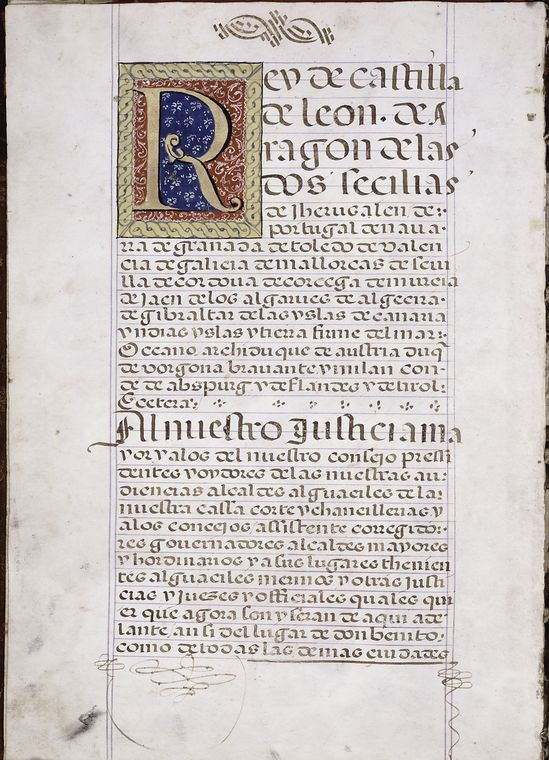 Rey de castilla
de leon. de A
ragon de las
dos secilias
de Jherusalen de:
portugal de naua.
rra de granada de toledo de valen
cia de galicia de mallorcas de seui
lla de cordoua de corcega de murcia
de Jaen de los algarues de algecira.
de gibraltar de las yslas de canaria
yndias yslas y tierra firme del mar:
Occeano, archiduque de austria duq̃
de vorgona brauante y milan con
de de abspurg y de flandes y de tirol:
Ecetera:
Al nuestro Justicia ma
yor y alos del nuestro consejo pressi
dentes y oydores de las nuestras au:
diencias alcaldes alguaciles de la
nuestra cassa corte y chancillerias y
alos concejos assistente corregido:
res gouernadores alcaldes mayores
y hordinarios y a sus lugares thenien
tes alguaciles merinos y otras Justi
cias y Jueses y officiales quales qui
er que agora son y seran de aqui ade
lante, an si del lugar de don benito:
como de todas las demas ciudades